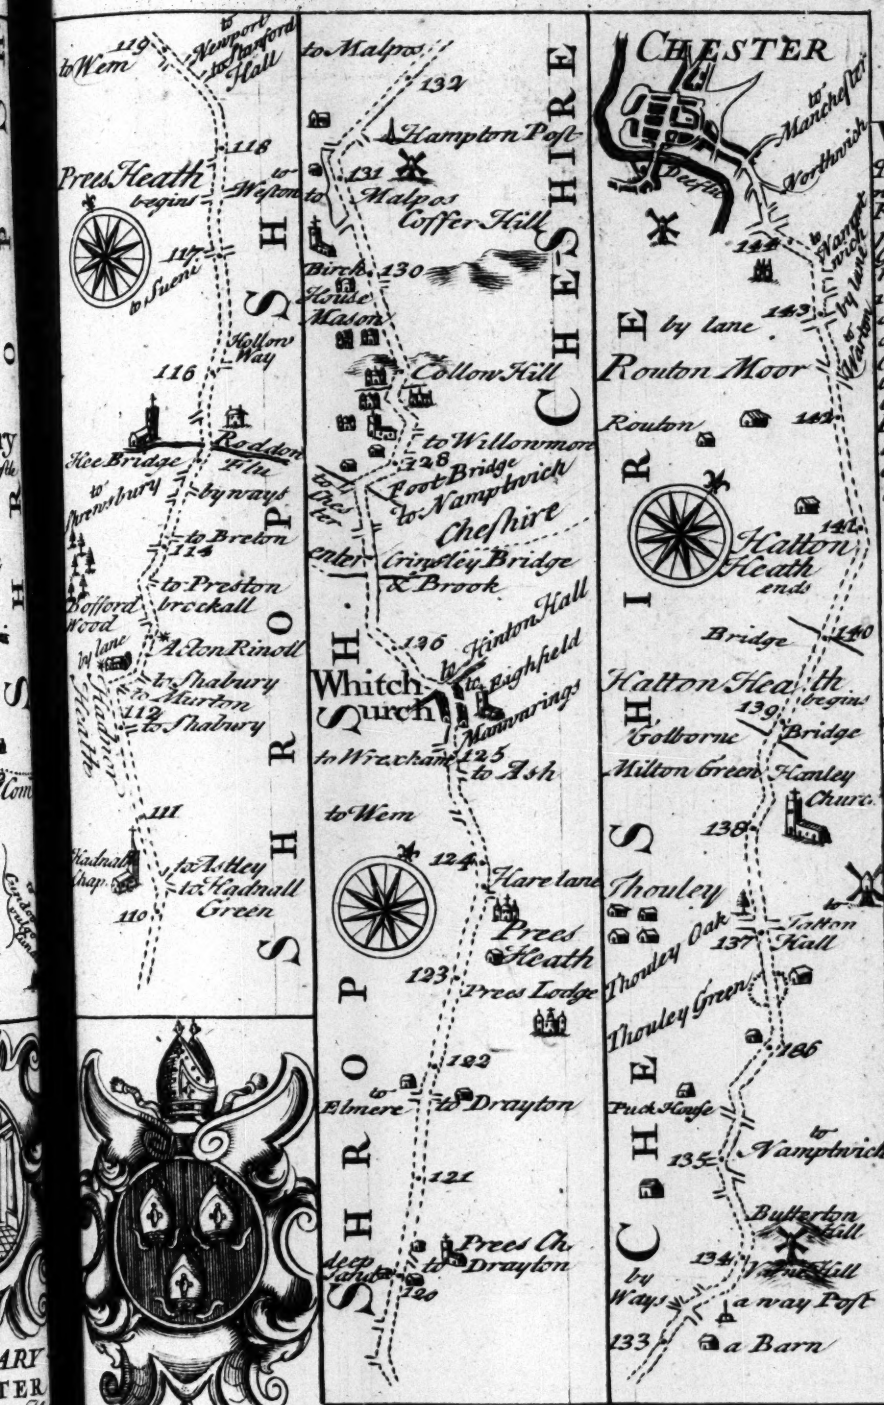 to
Newport
to Stanford
Hall
119
to Wem
118
Prees Heath
begins
to
Weston
117
to Sueni
Hollow
Way
116
Roddon
Flu
Hee Bridge
to
Shrewsbury
byways
to Breton
114
to Preston
brockall
Bofford
Wood
Acton Rinoll
by lane
to Shabury
to Murton
112
to Shabury
Hadner
Heath
111
Hadnall
Chap.
to Astley
to Hadnall
Green
110
SHROPSH
to Malpos
132
Hampton Post
131
to
Malpos
Coffer Hill
Birch
130
House
Mason
Collow Hill
to Willowmore
128
Foot Bridge
to Namptwich
to
Ches
ter
Cheshire
enter
Crinsley Bridge
& Brook
126
to Hinton Hall
to Highfield
Whitch
urch
Mannurings
to Wrexham
125
to Ash
to Wem
124
Hare lane
Prees
Heath
123
Prees Lodge
122
to
Elmere
to Drayton
121
Prees Ch.
deep
Sand
to Drayton
120
SHROPSH.
CHESHIRE
CHESTER
to
Manchester
Northwich
Dee flu
144
to
Nampt
wich
by lane
143
to
Warton
by lane
Routon Moor
142
Routon
141
Hatton
Heath
ends
Bridge
140
Hatton Heath
begins
139
Golborne Bridge
Milton Green
Hanley
Churc.
138
Thouley
to
Tatton
Hall
137
Thouley Oak
Thouley Green
186
Puck House
to
Namptwich
135
Butterton
Hall
134
Hill
by
Ways
a way Post
133
a Barn
CHESHIRE
ARY
TER